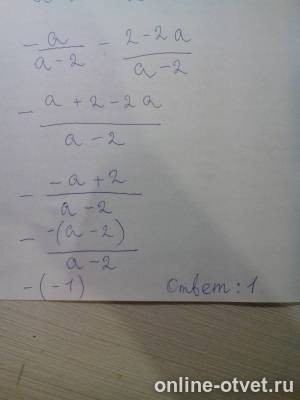 - a/(a-2) - (2-2a)/(a-2)
- (a+2-2a)/(a-2)
- (-a+2)/(a-2)
- (-(a-2))/(a-2)
-(-1) Ответ: 1
online-otvet.ru